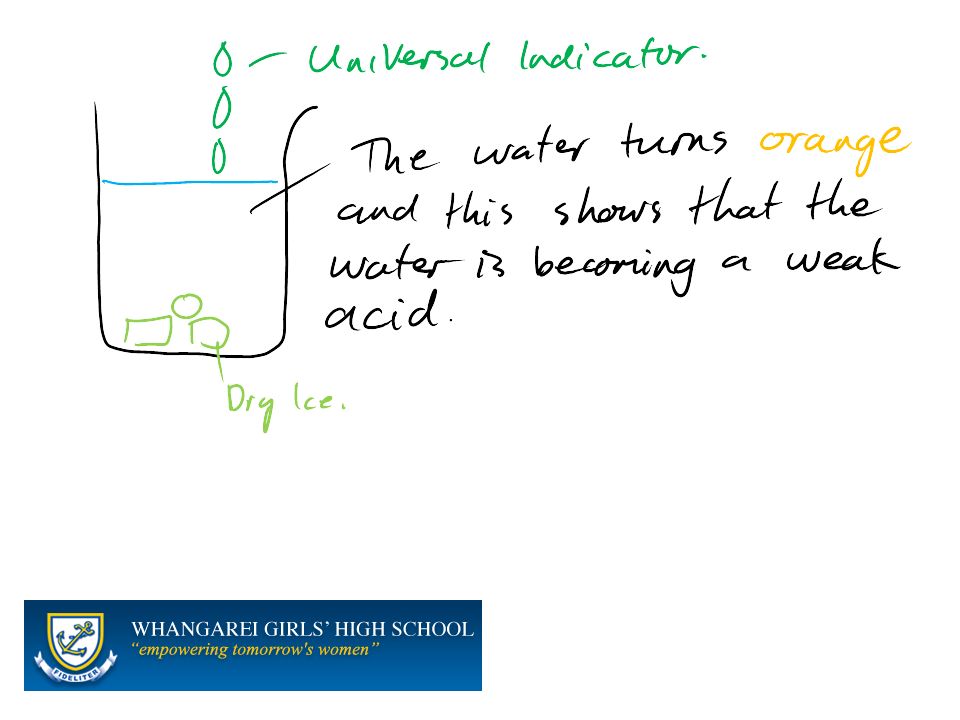 Universal Indicator.
The water turns orange
and this shows that the
water is becoming a weak
acid.
Dry Ice.
WHANGAREI GIRLS' HIGH SCHOOL
"empowering tomorrow's women"
FIDELITER